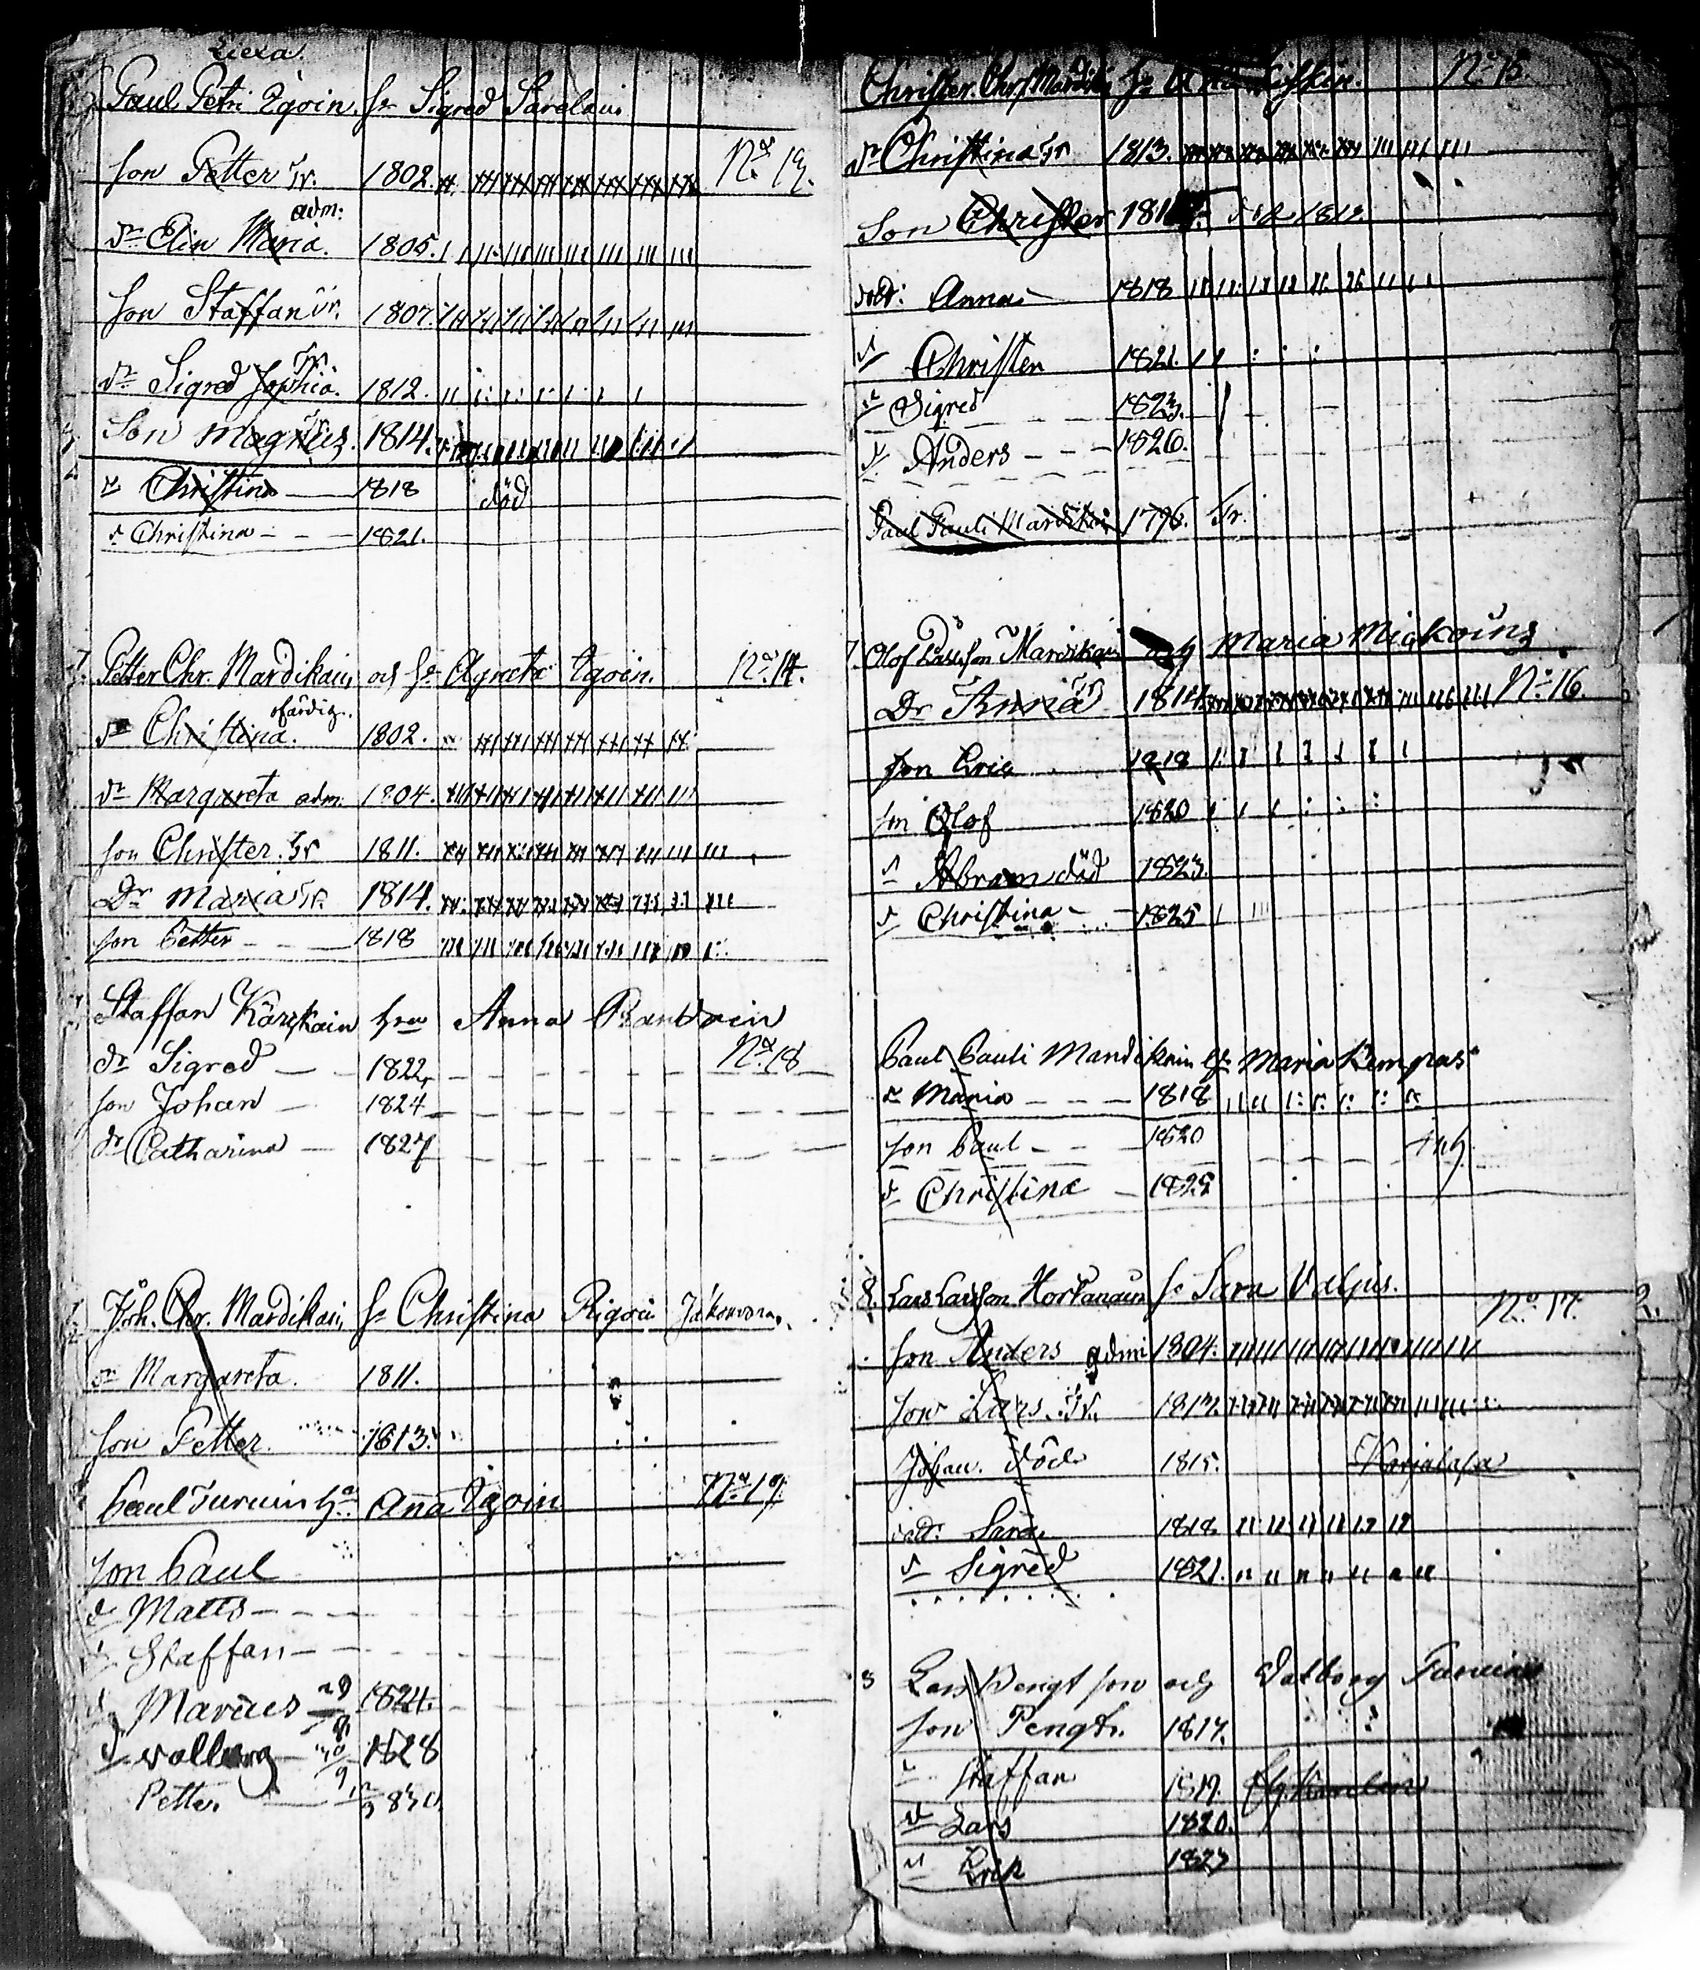 Liexa.
Paul Petri Egoin. hr Sigred Sarelain
Son Petter Tr. 1802. No 13.
dr Elin Maria. adm: 1805.
Son Staffan Tr. 1807.
dr Sigred Sophia. Tr. 1812.
Son Magnus. Tr. 1814.
dr Christina 1818 död
dr Christina 1821.
7. Petter Chr. Mardikain och hr Agneta Egoin. No. 14.
dr Christina. ofärdig. 1802.
dr Margareta adm. 1804.
Son Christer. Tr 1811.
Dr Maria Tr. 1814.
Son Petter 1818
Staffan Kärckäin hru Anna
No 18
dr Sigred 1822
Son Johan 1824
dr Catharina 1827
Joh. Chr. Mardikain, hr Christina Rigoin
dr Margareta. 1811.
Son Petter. 1813.
Paul Turuin hr Ana Egoin No 19.
Son Paul
dr Matts
Staffan
Marcus 1824.
Petter
Christer. Chr. Mardik. No 15.
dr Christina Tr 1813.
Son Christer död
dotr: Anna 1818
Christer 1821.
Sigred 1823.
Anders 1826.
Paul Pauli Mardikain 1796. Tr.
7. Olof Larsson Mardikain och Maria Mickoin
Dr Anna Tr 1814 No. 16.
Son Eric 1818
Son Olof 1820
Abram död 1823.
Christina 1825
Paul Pauli Mardikain hr Maria Kempas
dr Maria 1818
Son Paul 1820
dr Christina
8. Lars Larsson Hortanain hr Sara Valjus.
No. 17.
Son Anders admi 1804.
Son Lars. Tr. 1813.
Johan. död. 1815.
dotr: Sara 1818
dr Sigred 1821.
8 Lars Bengtson och Valborg
Son Pengt. 1817.
Staffan 1819.
Lars 1820.
Erik 1823